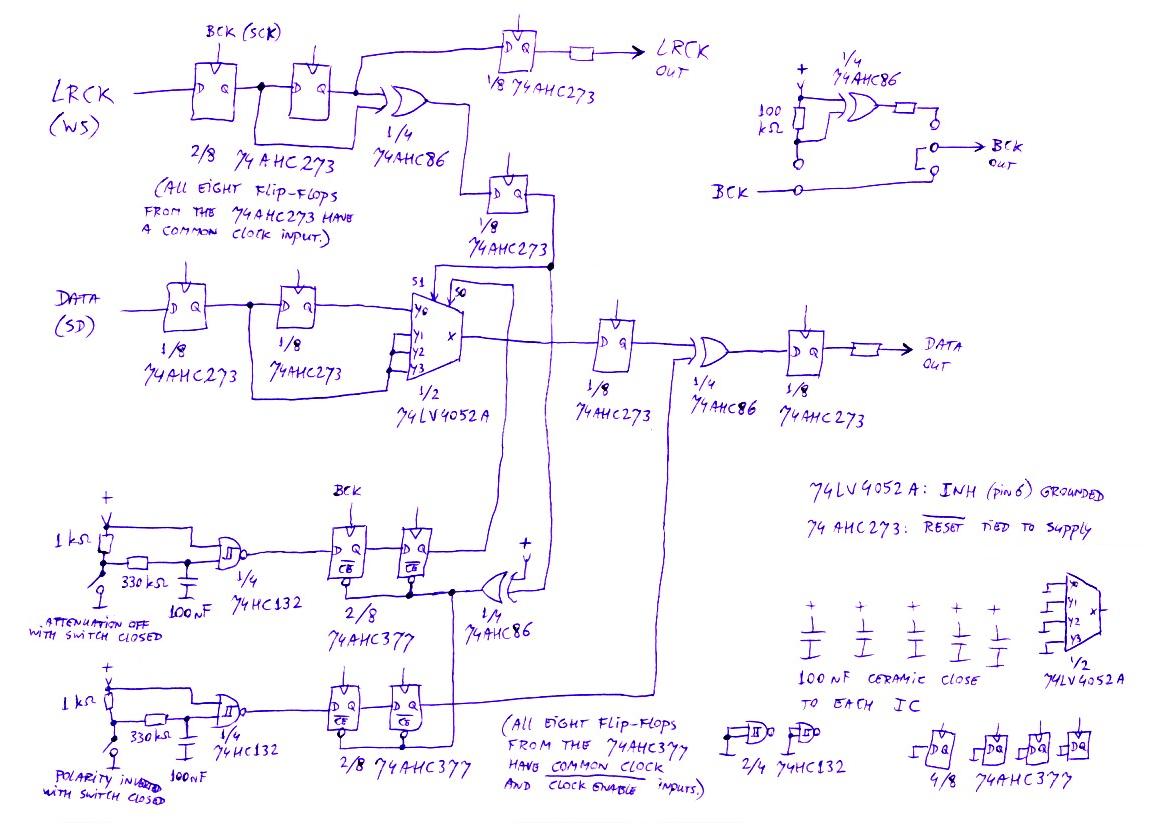 BCK (SCK)
LRCK
(WS)
D Q
D Q
2/8 74AHC273
(ALL EIGHT FLIP-FLOPS
FROM THE 74AHC273 HAVE
A COMMON CLOCK INPUT.)
1/4
74AHC86
D Q
1/8 74AHC273
LRCK
OUT
D Q
1/8
74AHC273
+
100
kΩ
1/4
74AHC86
BCK
BCK
OUT
DATA
(SD)
D Q
1/8
74AHC273
D Q
1/8
74AHC273
S1
S0
Y0
Y1
Y2
Y3
X
1/2
74LV4052A
D Q
1/8
74AHC273
1/4
74AHC86
D Q
1/8
74AHC273
DATA
OUT
+
1 kΩ
330 kΩ
100 nF
ATTENUATION OFF
WITH SWITCH CLOSED
1/4
74HC132
BCK
D Q
CE
D Q
CE
2/8
74AHC377
+
1/4
74AHC86
+
1 kΩ
330 kΩ
100 nF
POLARITY INVERTED
WITH SWITCH CLOSED
1/4
74HC132
D Q
CE
D Q
CE
2/8 74AHC377
(ALL EIGHT FLIP-FLOPS
FROM THE 74AHC377
HAVE COMMON CLOCK
AND CLOCK ENABLE INPUTS.)
74LV4052A: INH (pin 6) GROUNDED
74AHC273: RESET TIED TO SUPPLY
+ + + + +
100 nF CERAMIC CLOSE
TO EACH IC
Y0
Y1
Y2
Y3
X
1/2
74LV4052A
2/4 74HC132
D Q
D Q
D Q
D Q
4/8 74AHC377